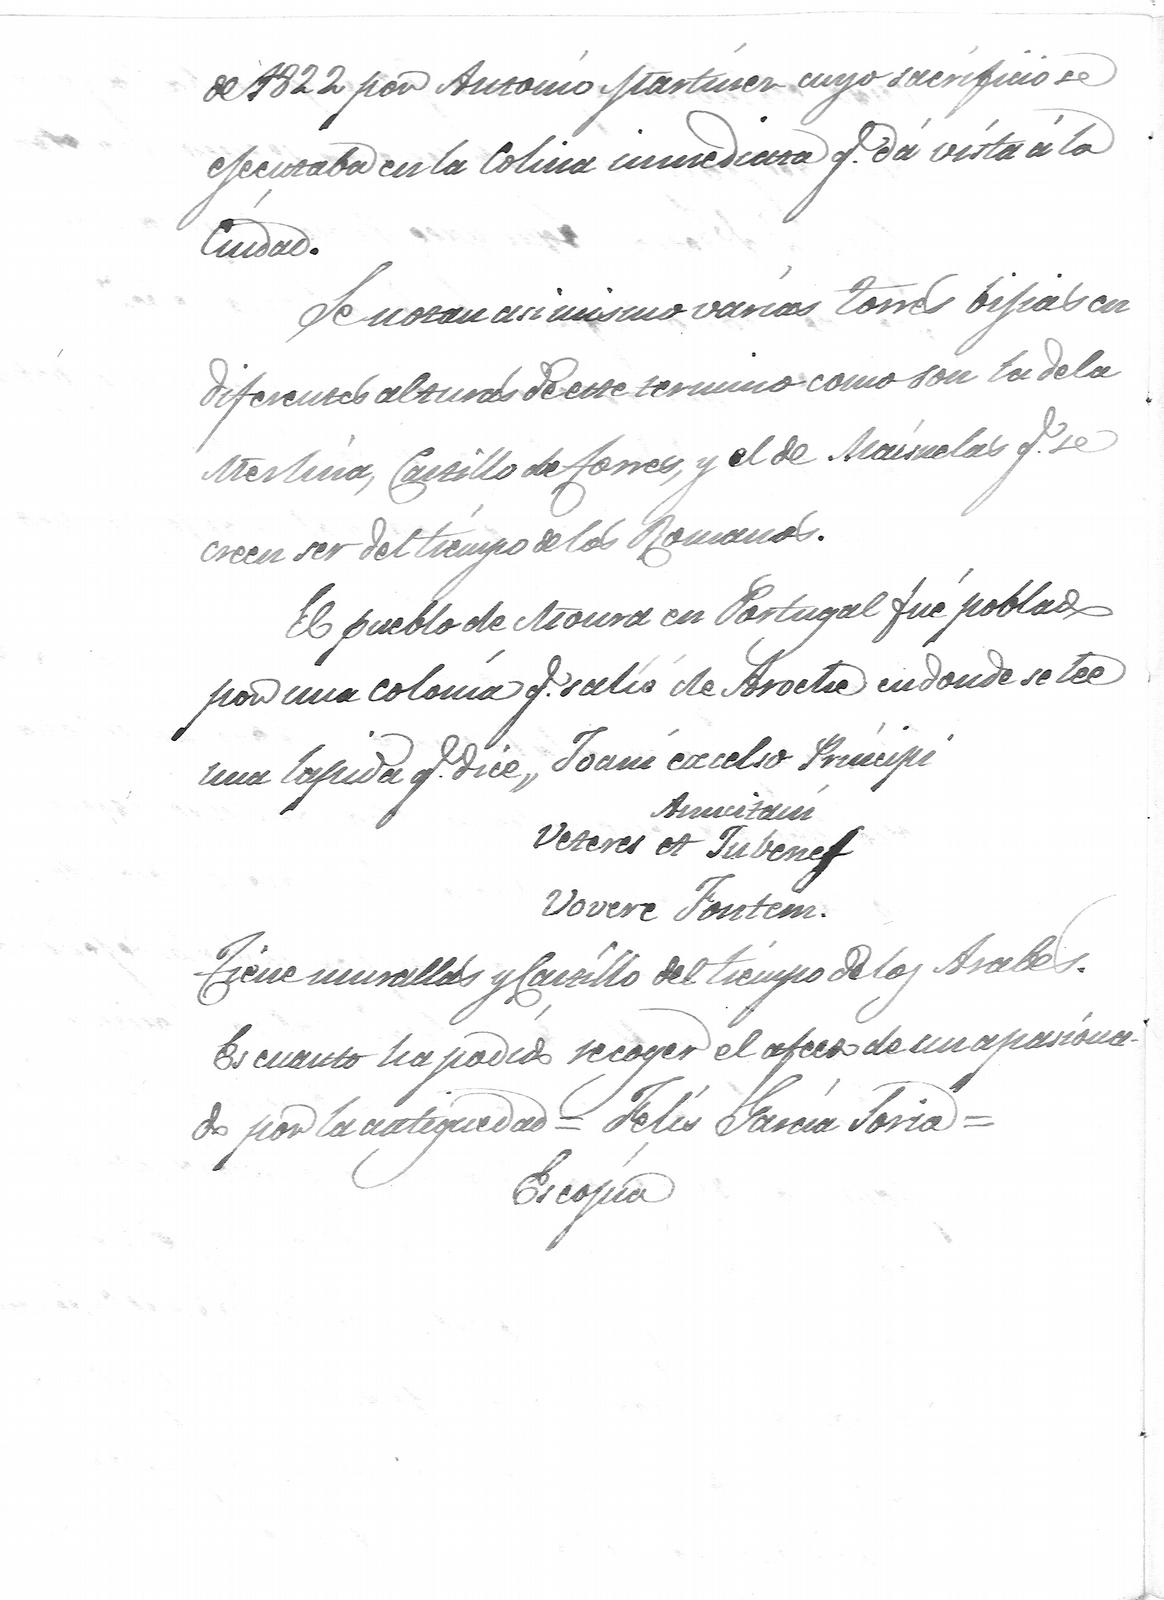 de 1822 por Antonio Martinez cuyo sacrificio se
ejecutaba en la Colina inmediata q.e dá vista á la
Ciudad.
Se notan asi mismo varias torres bijias en
diferentes alturas de este termino como son la de la
Merlina, Castillo de Torres, y el de Maisuelas q.e se
creen ser del tiempo de los Romanos.
El pueblo de Moura en Portugal fué poblado
por una colonia q.e salió de Aroche en donde se lee
una lapida q.e dice,, Joani excelso Principi
Arucitani
Veteres et Jubenes
Vovere Fontem.
Tiene murallas y Castillo del tiempo de los Arabes.
Es cuanto ha podido recoger el afecto de un apasiona-
do por la antiguedad = Felis Garcia Soria =
Es copia